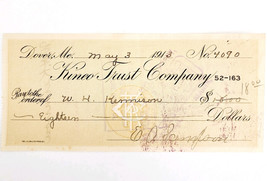 Dover, Me. May 3 1913 No. 4090
Kineo Trust Company 52-163
Pay to the order of W. H. Kennison $18.00
18 00
Eighteen Dollars